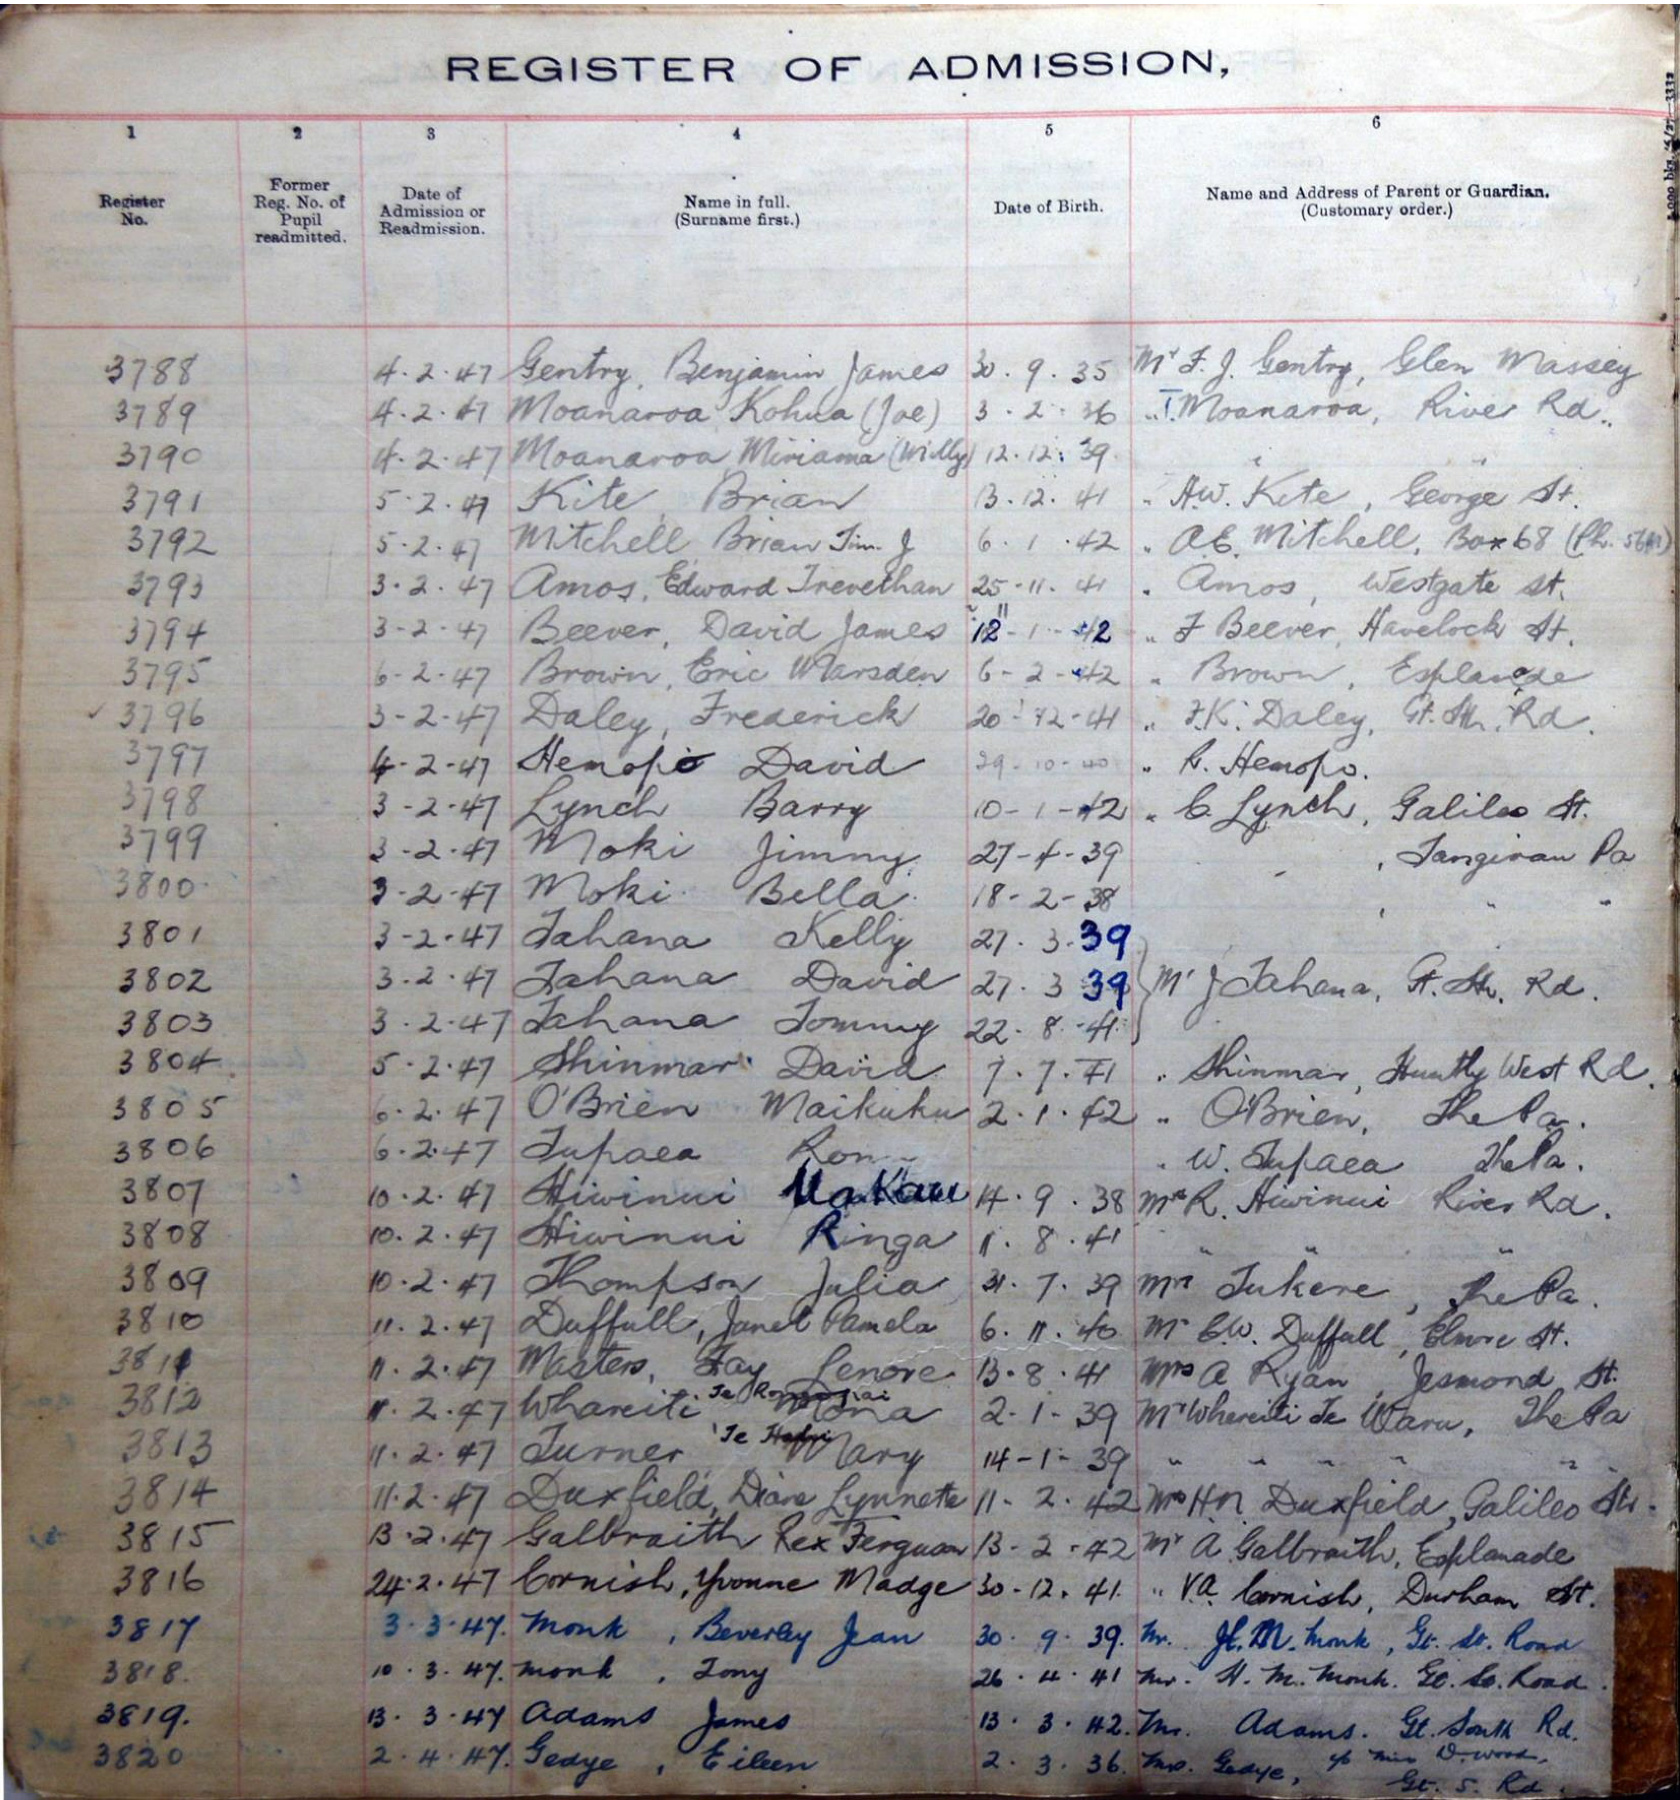 REGISTER OF ADMISSION,
1 2 3 4 5 6
Register No. Former Reg. No. of Pupil readmitted. Date of Admission or Readmission. Name in full. (Surname first.) Date of Birth. Name and Address of Parent or Guardian. (Customary order.)
3788 4.2.47 Gentry, Benjamin James 30.9.35 Mr F. J. Gentry, Glen Massey
3789 4.2.47 Moanaroa Kohua (Joe) 3.2.36 " T. Moanaroa, River Rd.
3790 4.2.47 Moanaroa Miriama (Milly) 12.12.39 " "
3791 5.2.47 Kite, Brian 13.12.41 " H.W. Kite, George St.
3792 5.2.47 Mitchell Brian Tim. J 6.1.42 " A.E. Mitchell, Box 68 (Ph.
3793 3.2.47 Amos, Edward Trevethan 25-11-41 " Amos, Westgate St.
3794 3-2-47 Beever, David James 12-1-42 " F Beever, Havelock St.
3795 6-2-47 Brown, Eric Marsden 6-2-42 " Brown, Esplanade
✓ 3796 3-2-47 Daley, Frederick 20-12-41 " F.K. Daley, Gt. Sth. Rd.
3797 4-2-47 Hemopo David 29-10-40 " R. Hemopo.
3798 3-2-47 Lynch Barry 10-1-42 " C. Lynch, Galileo St.
3799 3-2-47 Moki Jimmy 27-4-39 , Tangirau Pa
3800 3-2-47 Moki Bella 18-2-38 , " "
3801 3-2-47 Tahana Kelly 27.3.39
3802 3.2.47 Tahana David 27.3 39 } Mr J Tahana, Gt. Sth. Rd.
3803 3.2.47 Tahana Tommy 22.8.41
3804 5.2.47 Shinmar David 7.7.41 " Shinmar, Huntly West Rd.
3805 6.2.47 O'Brien Maikuku 2.1.42 " O'Brien, The Pa.
3806 6.2.47 Tupaea " W. Tupaea The Pa.
3807 10.2.47 Hiwinui UaKau 14.9.38 Mrs R. Hiwinui River Rd.
3808 10.2.47 Hiwinui Ringa 11.8.41 " " "
3809 10.2.47 Thompson Julia 31.7.39 Mrs Tukere, The Pa.
3810 11.2.47 Duffull, Janet Pamela 6.11.40 Mr C.W. Duffull, Elmore St.
3811 11.2.47 Masters, Fay Lenore 13.8.41 Mrs A Ryan, Jesmond St.
3812 11.2.47 Whareiti Te Mona 2-1-39 Mr Whareiti Te Waru, The Pa
3813 11.2.47 Turner Te Mary 14-1-39 " " " " "
3814 11.2.47 Duxfield, Diane Lynnette 11-2-42 Mrs H.N. Duxfield, Galileo Str.
3815 13.2.47 Galbraith Rex Ferguson 13-2-42 Mr A Galbraith, Esplanade
3816 24.2.47 Cornish, Yvonne Madge 30-12.41. " V.A. Cornish, Durham St.
3817 3.3.47. Monk, Beverley Jean 30.9.39. Mr. H. M. Monk, Gt. St. Road
3818. 10.3.47. Monk, Tony 26.4.41 Mr. H. M. Monk. Gt. So. Road.
3819. 13.3.47 Adams James 13.3.42. Mr. Adams. Gt. South Rd.
3820 2.4.47. Gedye, Eileen 2.3.36. Mrs. Gedye, c/o Miss D. Wood,
Gt. S. Rd.